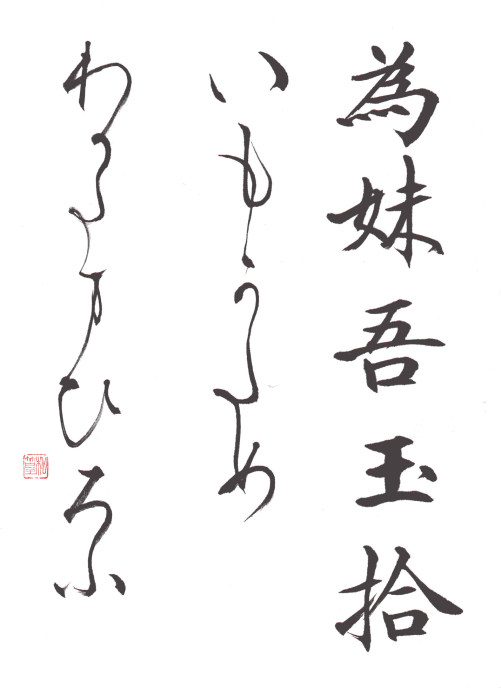 為妹吾玉拾
いもかため
わかたまひろふ